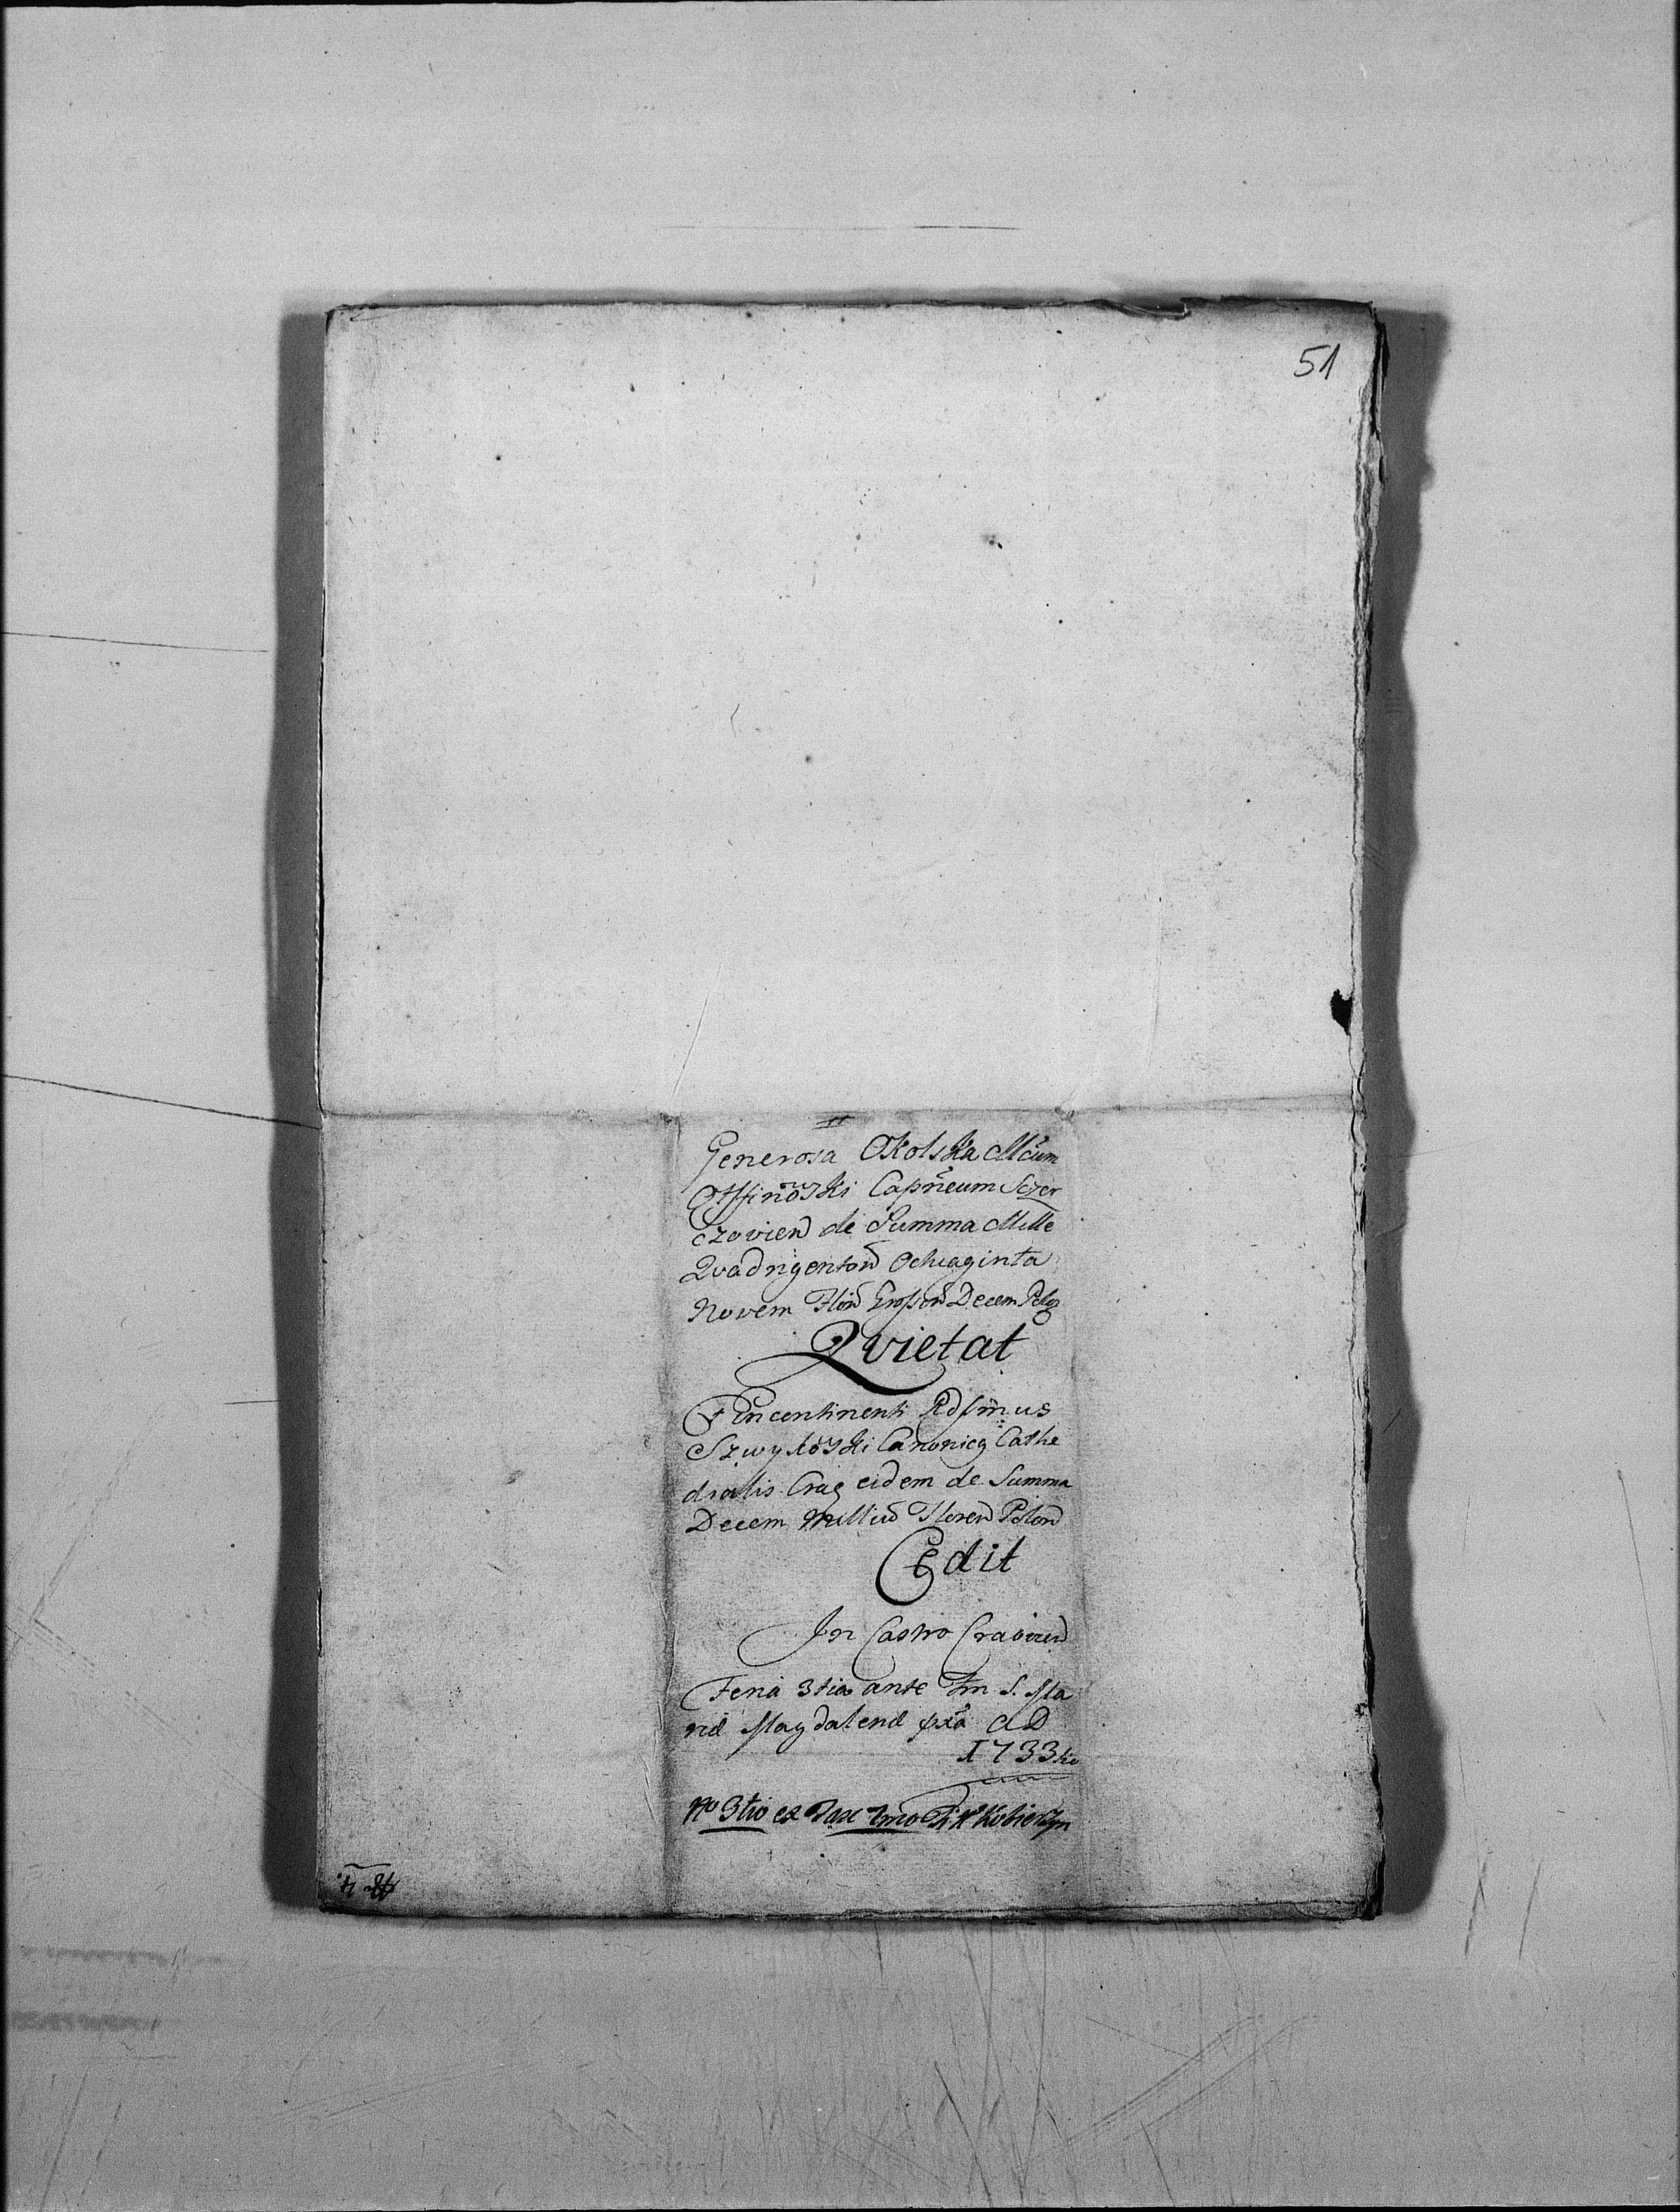 51
Generosa Okolska Mcum
Otffinowski Capneum Sczer
czovien de Summa Mille
Quadrigenton Octuaginta
Novem Flon Grosson Decem Polo
Qvietat
Et Incontinenti Rdssimus
Szwykowski Canonicq Cathe
dralis Crac eidem de Summa
Decem Milliu Floren Polon
Cedit
In Castro Cracovien
Feria 3tia ante Fm S. Ma
riæ Magdalenæ pxa AD
1733tio
No 3tio ex Fasc 1mo Kobierzyn